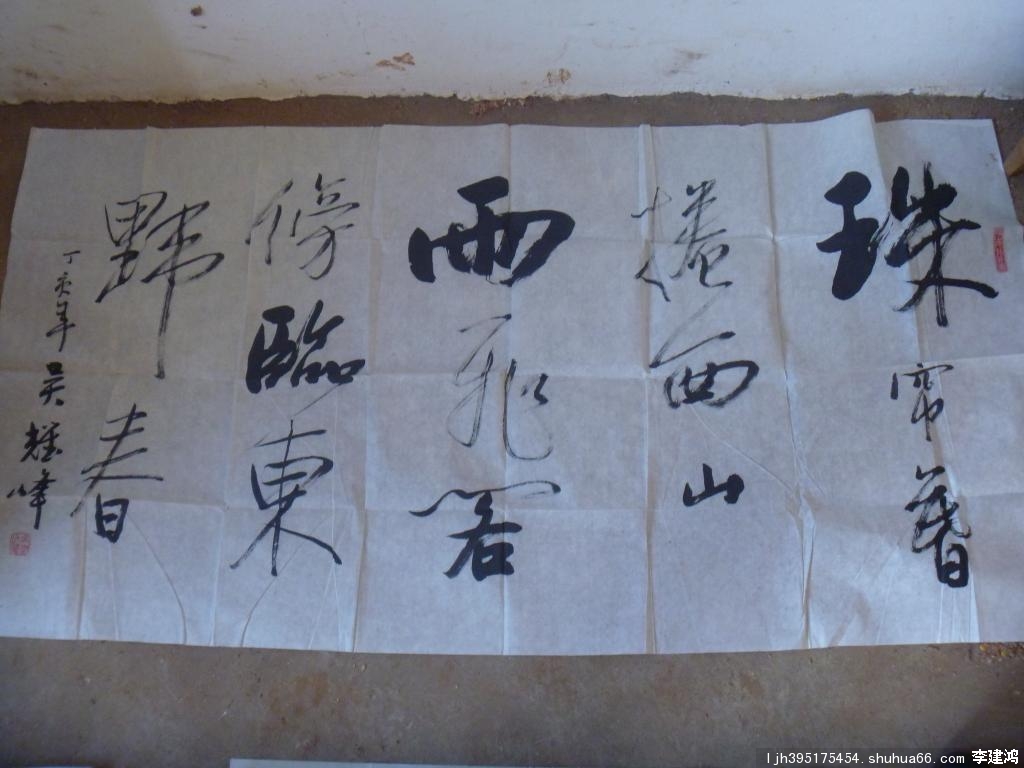 珠帘暮
捲西山
雨飛閣
傍臨東
野春
丁亥年 吴耀峰
ljh395175454. shuhua66. com 李建鸿